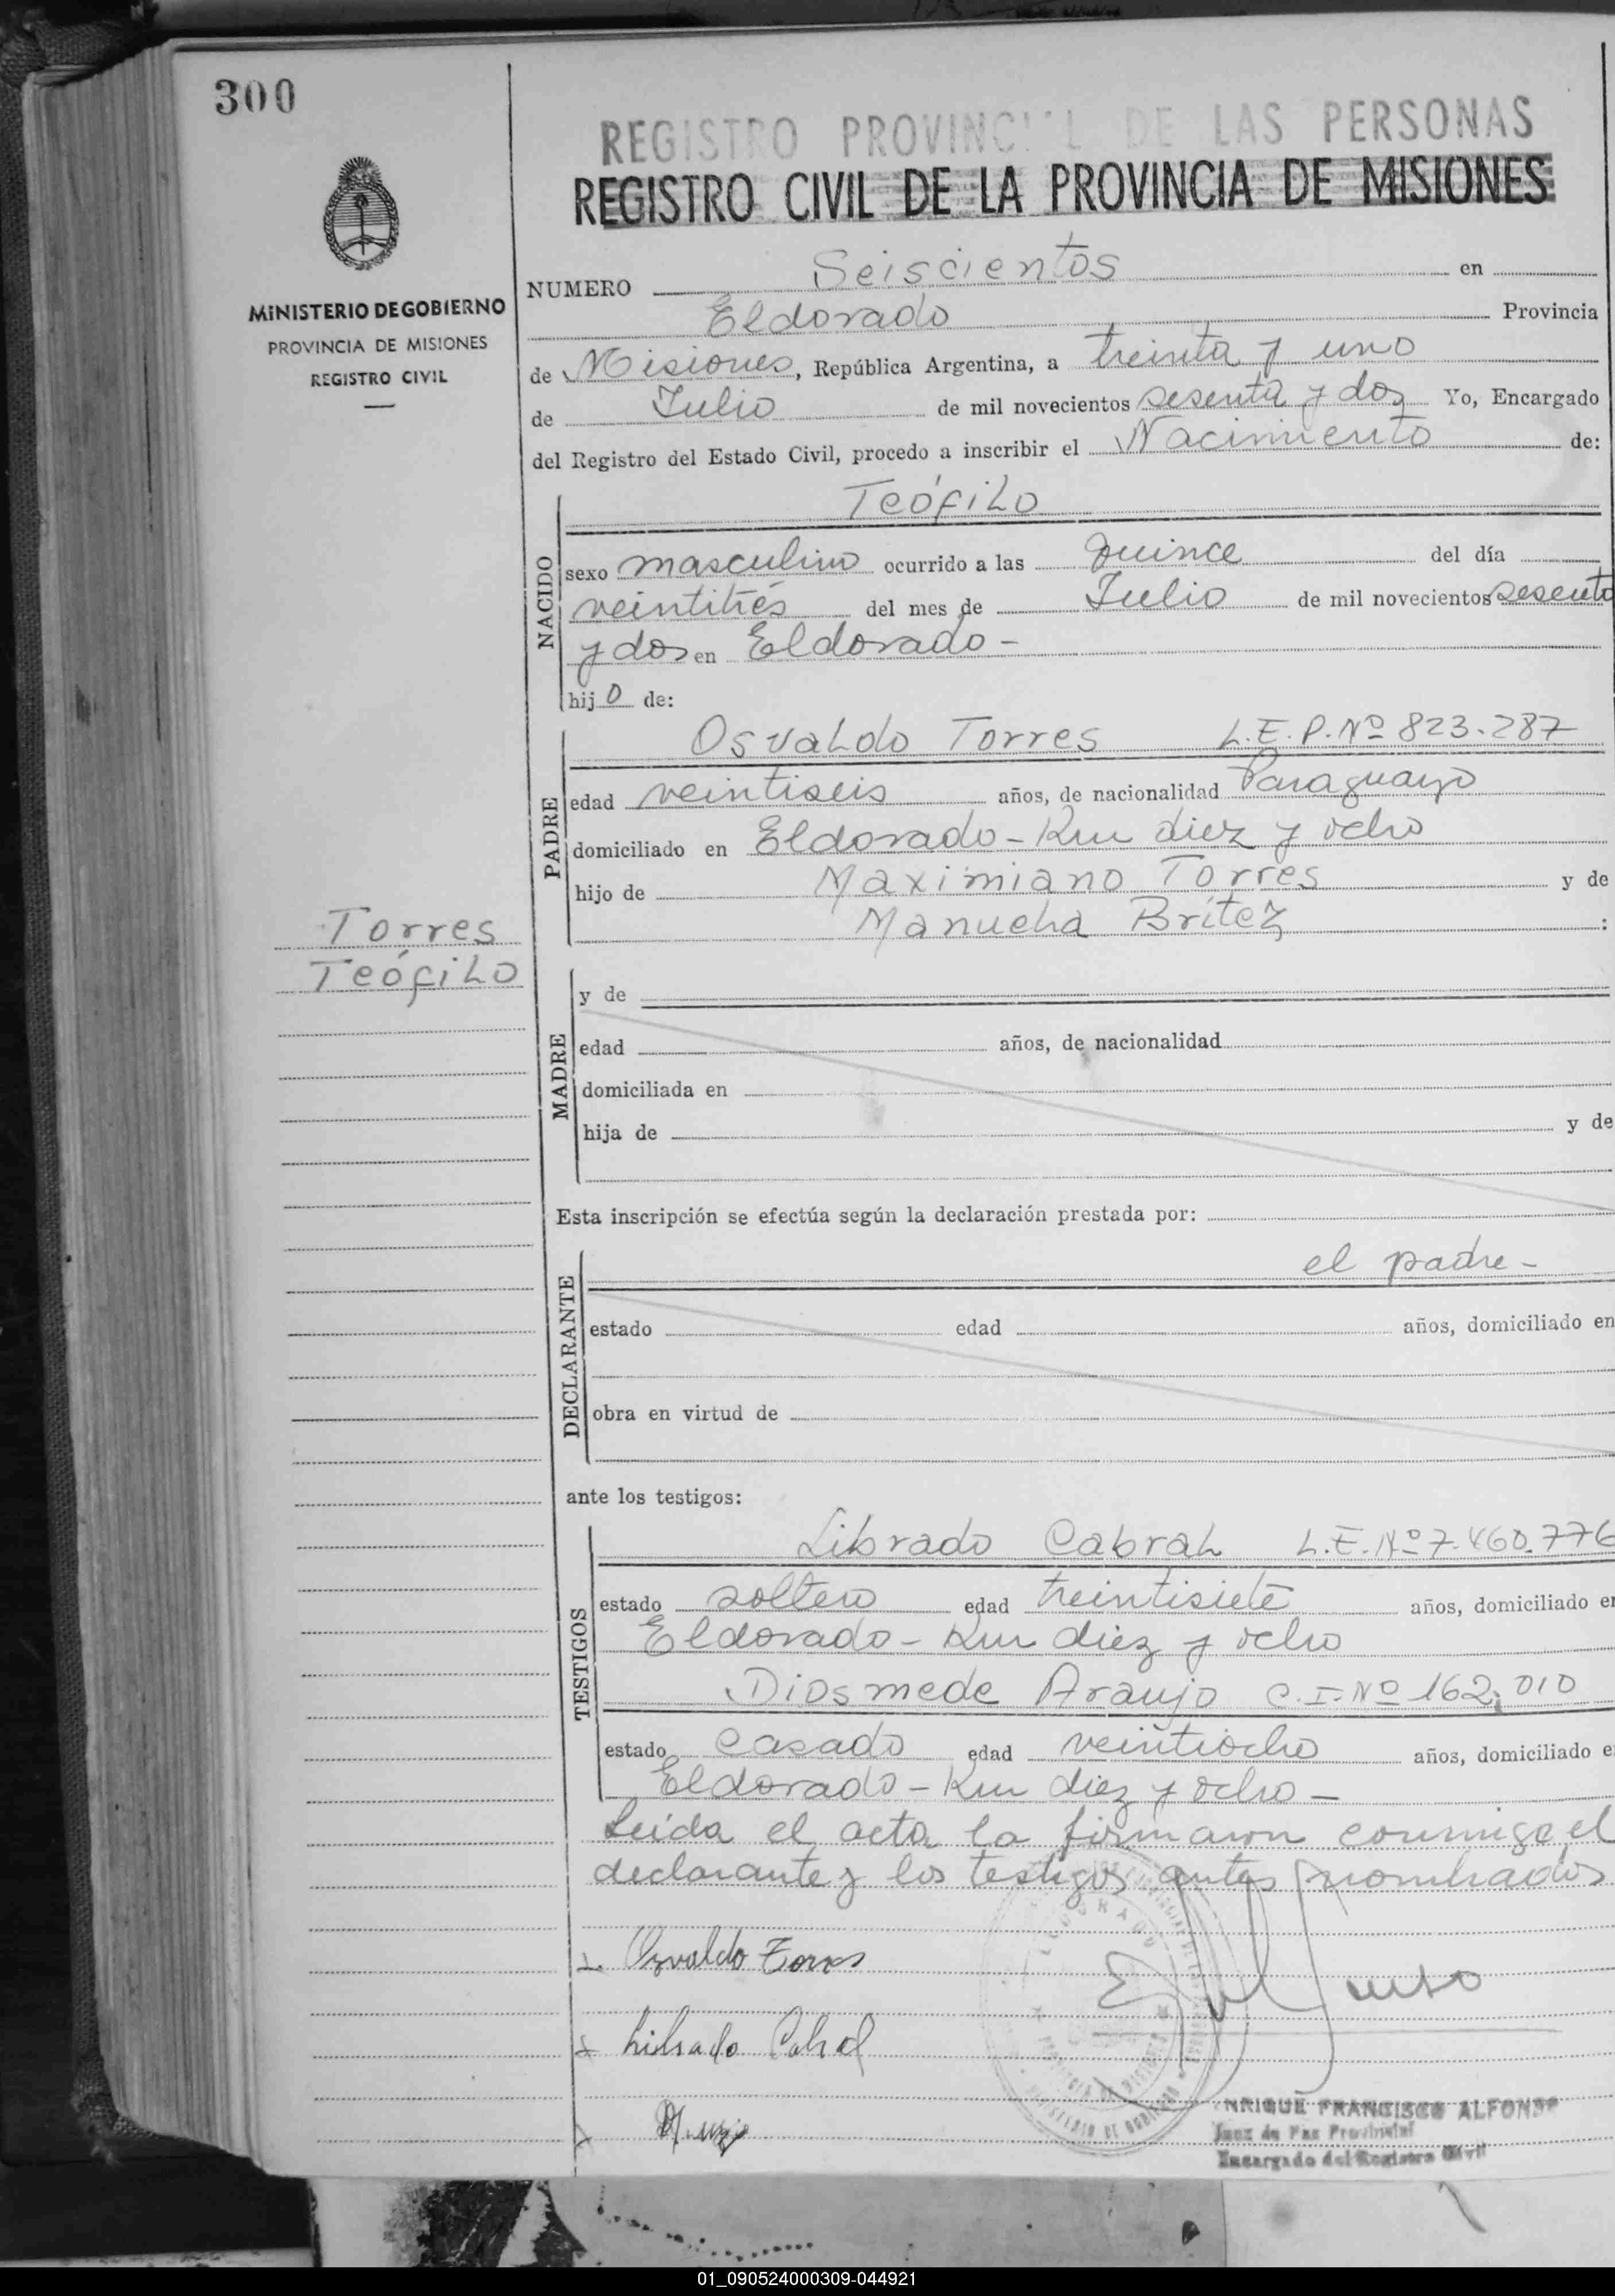 300
REGISTRO PROVINCIAL DE LAS PERSONAS
REGISTRO CIVIL DE LA PROVINCIA DE MISIONES
MINISTERIO DE GOBIERNO
PROVINCIA DE MISIONES
REGISTRO CIVIL
NUMERO Seiscientos en
Eldorado Provincia
de Misiones, República Argentina, a treinta y uno
de Julio de mil novecientos sesenta y dos Yo, Encargado
del Registro del Estado Civil, procedo a inscribir el Nacimiento de:
NACIDO
Teófilo
sexo masculino ocurrido a las quince del día
veintitrés del mes de Julio de mil novecientos sesenta
y dos en Eldorado -
hijo de:
PADRE
Osvaldo Torres L.E.P. Nº 823.287
edad veintiseis años, de nacionalidad Paraguayo
domiciliado en Eldorado - Km diez y ocho
hijo de Maximiano Torres y de
Manucha Britez :
Torres
Teófilo
MADRE
y de
edad años, de nacionalidad
domiciliada en
hija de y de
Esta inscripción se efectúa según la declaración prestada por:
DECLARANTE
el padre -
estado edad años, domiciliado en
obra en virtud de
ante los testigos:
TESTIGOS
Librado Cabral L.E. Nº 7.460.776
estado soltero edad treintisiete años, domiciliado en
Eldorado - Km diez y ocho
Diosmede Araujo C.I. Nº 162.010
estado casado edad veintiocho años, domiciliado e
Eldorado - Km diez y ocho -
Leída el acta la firmaron conmigo el
declarante y los testigos antes nombrados
Osvaldo Torres
Librado Cabral
ENRIQUE FRANCISCO ALFONSO
Juez de Paz Provincial
Encargado del Registro Civil
01_090524000309-044921